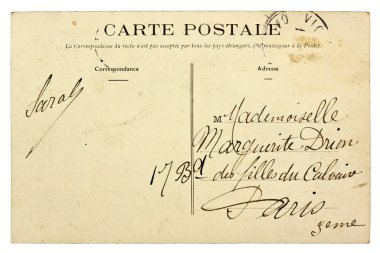 CARTE POSTALE
La Correspondance du recto n'est pas acceptée par tous les pays étrangers. (Se renseigner à la Poste).
Correspondance
Adresse
Sarah
Mademoiselle
Marguerite Drion
17 Bd des filles du Calvaire
Paris
3eme